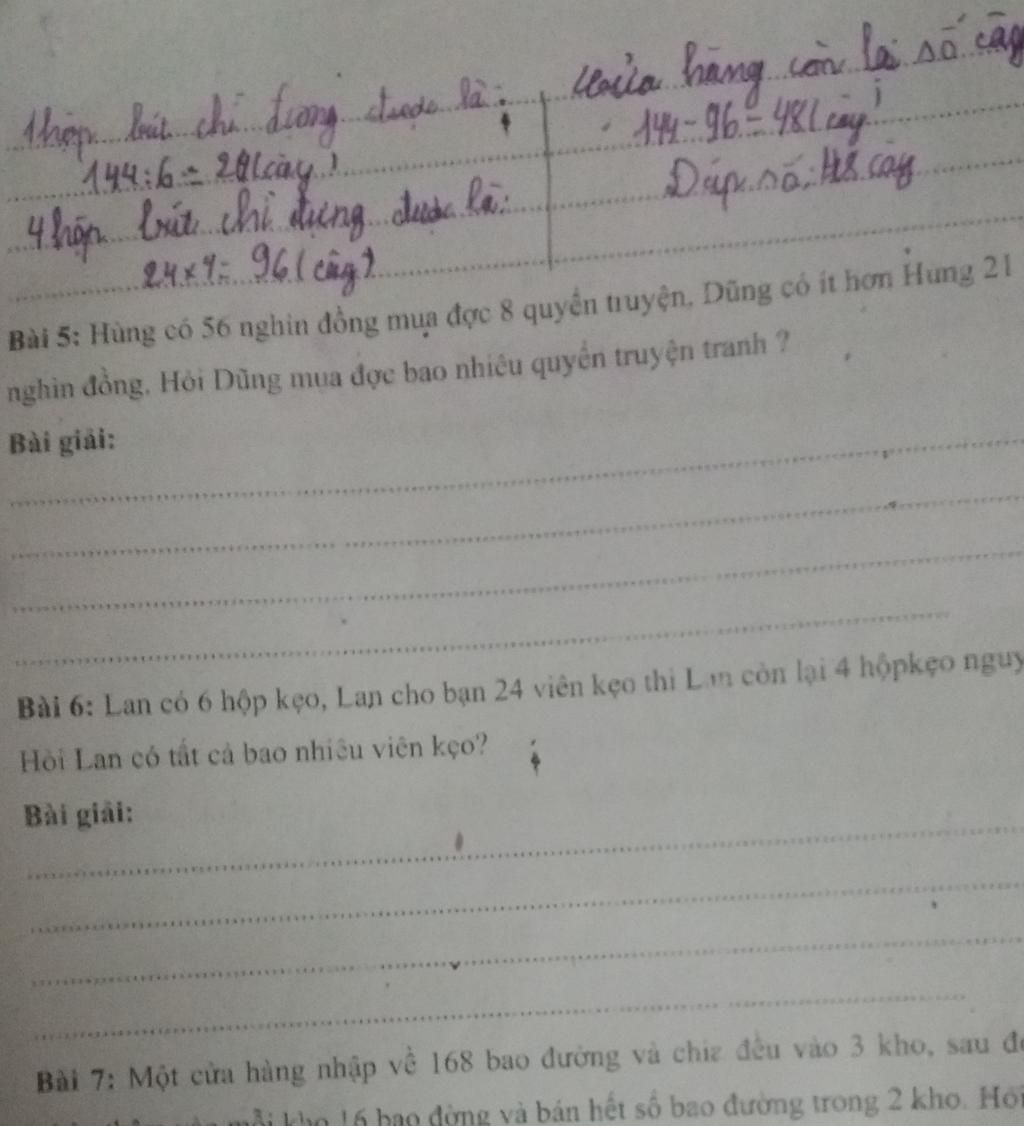 1 hộp bút chì đựng được là:
144 : 6 = 24 (cây)
4 hộp bút chì đựng được là:
24 x 4 = 96 (cây)
Cửa hàng còn lại số cây
144 - 96 = 48 (cây)
Đáp số: 48 cây
Bài 5: Hùng có 56 nghìn đồng mua đợc 8 quyển truyện, Dũng có ít hơn Hùng 21
nghìn đồng. Hỏi Dũng mua đợc bao nhiêu quyển truyện tranh ?
Bài giải:
Bài 6: Lan có 6 hộp kẹo, Lan cho bạn 24 viên kẹo thì Lan còn lại 4 hộpkẹo nguy
Hỏi Lan có tất cả bao nhiêu viên kẹo?
Bài giải:
Bài 7: Một cửa hàng nhập về 168 bao đường và chia đều vào 3 kho, sau đ
mỗi kho 16 bao đờng và bán hết số bao đường trong 2 kho. Hỏi